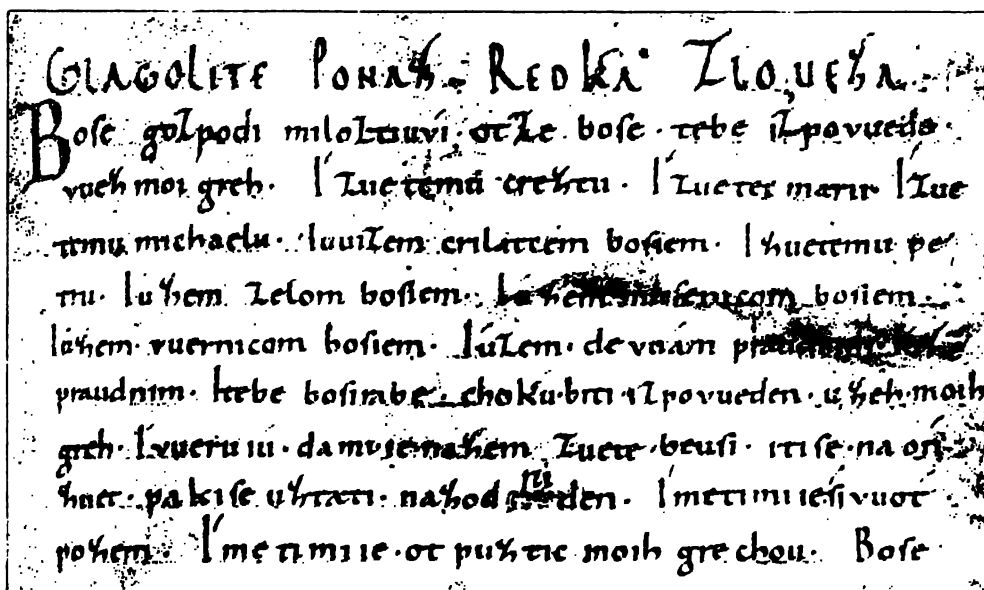 GLAGOLITE PONAZ REDKA ZLOUEZA
Bose gozpodi miloztiuvi. otze bose. tebe izpovuede.
vuez moi greh. I zuetemu creztu. I zuetei marii. I zue
temu michaelu. Iuuizem crilatcem bosiem. I zuetemu pe
tru. Iuzem zelom bosiem. Iuzem musenicom bosiem.
Iuzem vuernicom bosiem. Iúzem. devuám praudnim. Iuzem
praudnim. Itebe bosirabe. choku. biti. izpovueden. uzeh. moih
greh. Ivueruiu. da mi.ie. nazem zuete. beusi. iti se. na oni
zuet. paki se uztati. nazodni den. Imeti mi ie sivuot
pozem. Imeti mi ie. ot puztic moih grechou. Bose